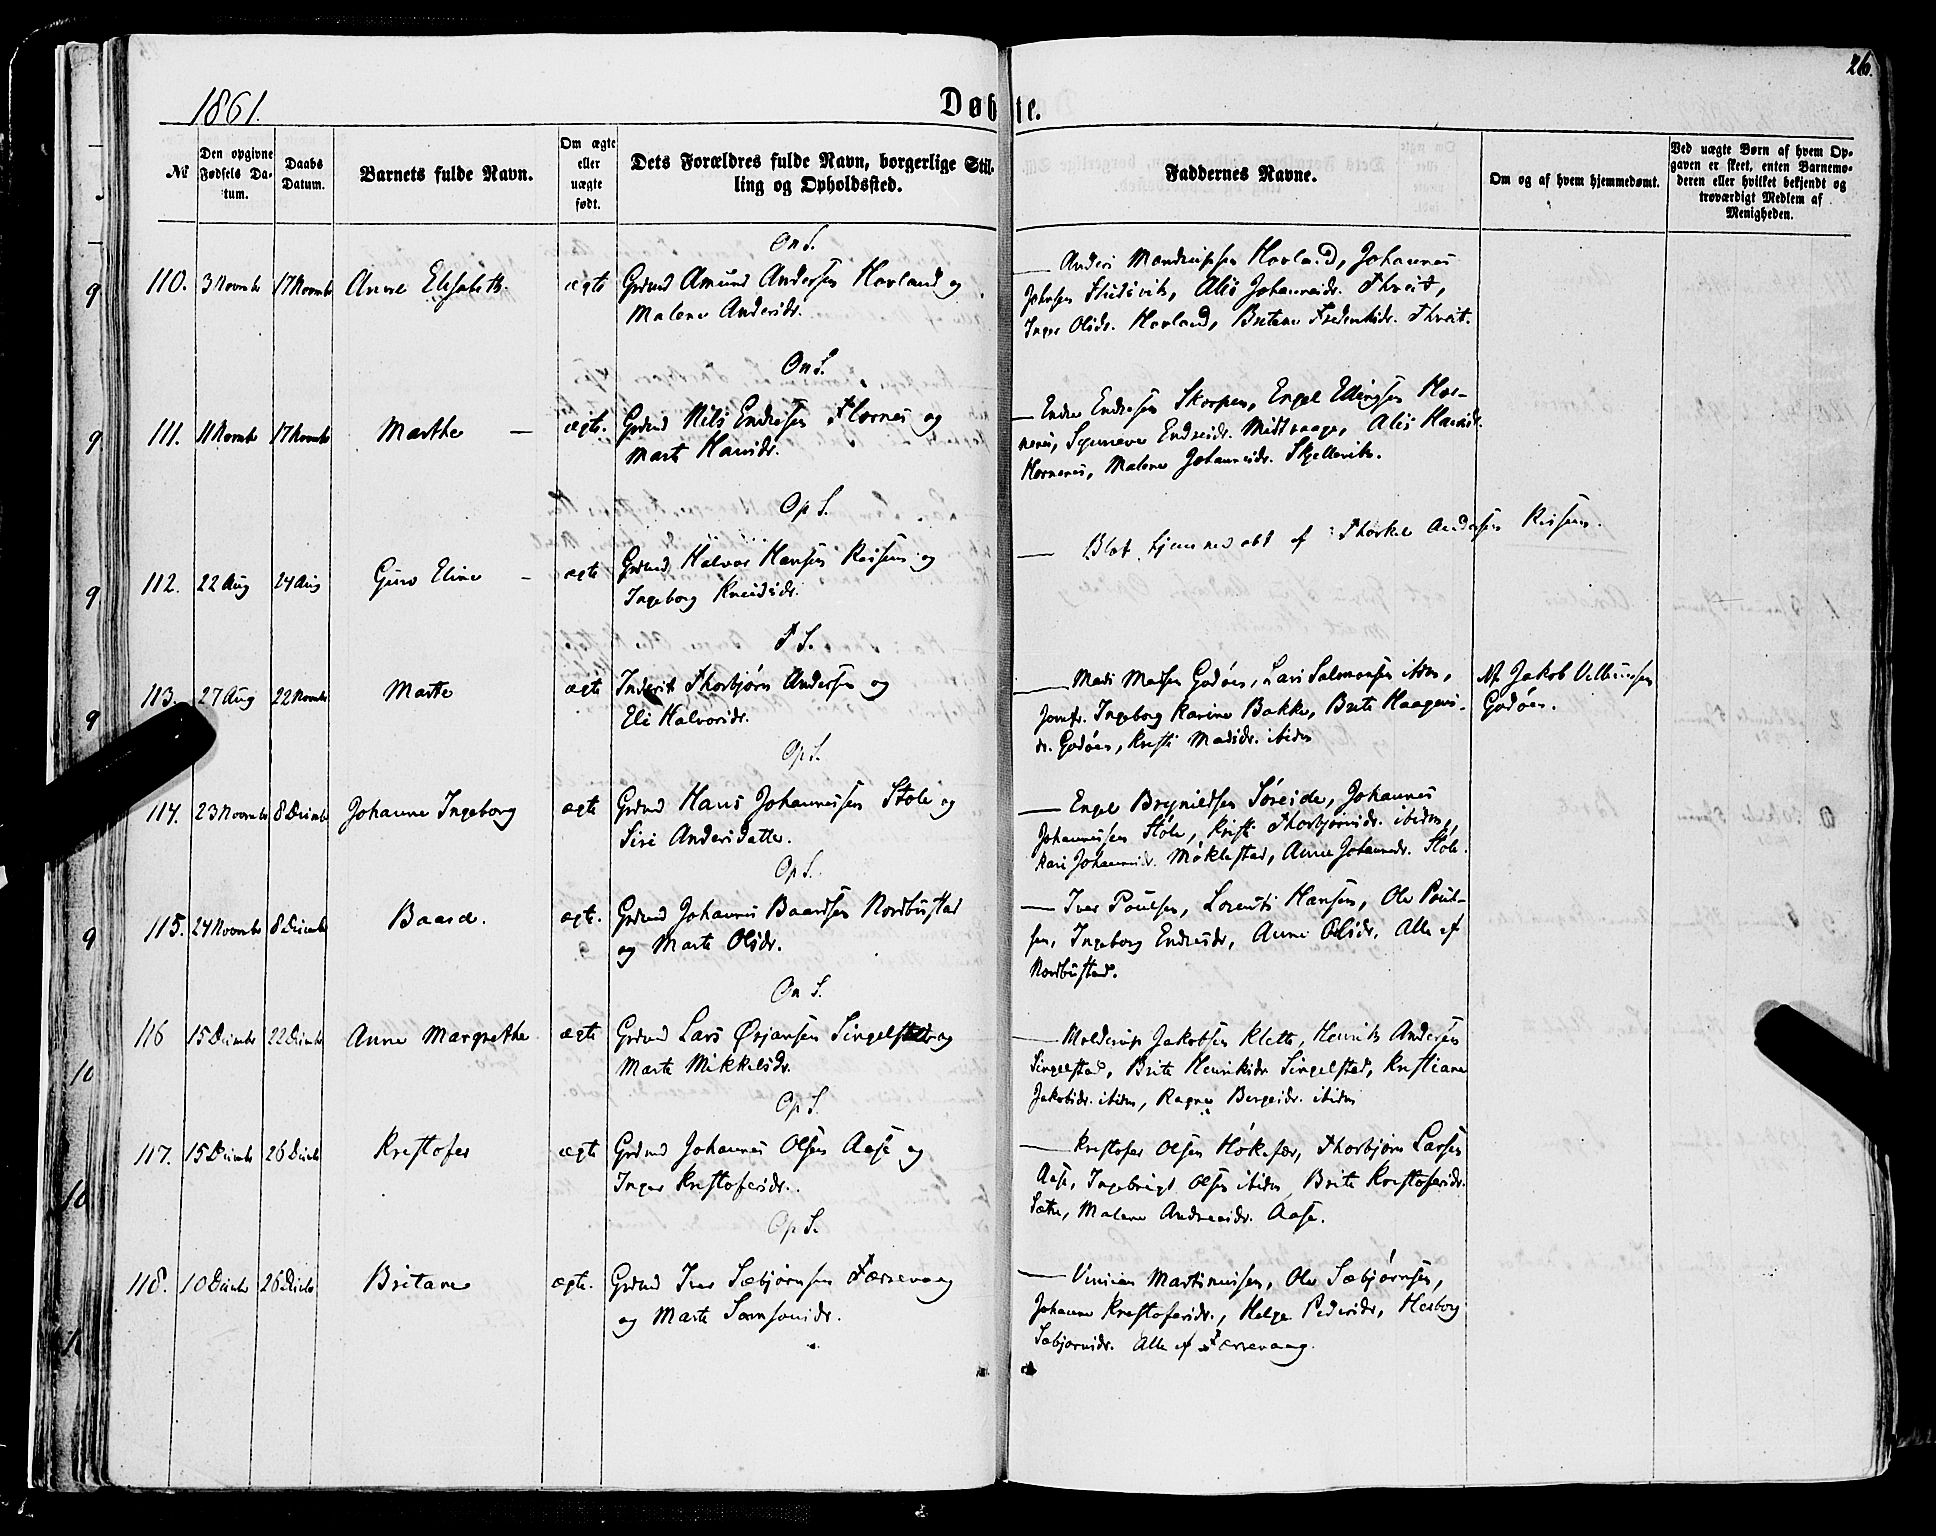 26.
1861.
Døbte.
№
Den opgivne Fødsels Datum.
Daabs Datum.
Barnets fulde Navn.
Om ægte eller uægte født.
Dets Forældres fulde Navn, borgerlige Stilling og Opholdssted.
Faddernes Navne.
Om og af hvem hjemmedømt.
Ved uægte Børn af hvem Opgaven er skeet, enten Barnemoderen eller hvilket bekjendt og troværdigt Medlem af Menigheden.
On S.
110. 3 Novmbr 17 Novmbr Anne Elisabeth. ægte Grdmd Amund Andersen Hovland og
Malene Andersdr.
Johannes
Alis Johannesdr. Thveit,
Inger Olsdr. Hovland, Thveit.
On S.
111. 11 Novmbr 17 Novmbr Marthe — ægte. Grdmd Nils Endresen og
Marte Hansdr.
— Endre Endresen Skorpen, Engel Ellingsen Hor-
nenes, Endresdr. Midtvaage, Alis
Hornenes, Malene Johannesdr. Skjellevik.
Op S.
112. 22 Aug 24 Aug Guro Eline - ægte Grdmd Halvor Hansen og
Ingeborg
— Blot hjemmedøbt af Thorkel Andersen
T S.
113. 27 Aug 22 Novmbr Marte ægte Inderst Thorbjørn Andersen og
Eli Halvorsdr.
— Mads Madsen Godøen, Lars Salmonsen ibdm,
Jomfr. Ingeborg Karine Bakke, Brite Haagens-
dr. Godøen, Kristi Madsdr. ibidm
Af Jakob Villumsen
Godøen.
Op S.
114. 23 Novmbr 8 Decmbr Johanne Ingeborg ægte Grdmd Hans Johannessen Støle og
Siri Andersdatter.
— Engel Brynildsen Søreide, Johannes
Johannessen Støle, Kristi Thorbjørnsdr. ibidm,
Kari Johannesdr. Møklestad, Anne Johannesdr. Støle.
Op S.
115. 24 Novmbr 8 Decmbr Baard. ægte. Grdmd Johannes Baardsen Nordbustad
og Marte Olsdr.
— Iver Poulsen, Lorents Hansen, Ole Poul-
sen, Ingeborg Endresdr, Anne Olsdr. Alle af
Nordbustad.
On S.
116 15 Decmbr 22 Decmbr Anne Margrethe ægte Grdmd Lars Ørjansen Singelstad og
Marte Mikkelsdr.
— Jakobsen Klette, Henrik Andersen
Singelstad, Brite Henriksdr Singelstad, Kristiane
Jakobsdr. ibidm, Ragna Børgesdr. ibidm
Op S.
117. 15 Decmbr 26 Decmbr Kristofer ægte Grdmd Johannes Olsen Aase og
Inger Kristofersdr.
— Kristofer Olsen Thorbjørn Larsen
Aase, Ingebrigt Olsen ibidm, Brite Kristofersdr.
Sætre, Malene Andreasdr. Aase.
Op S.
118. 10 Decbr 26 Decbr Britane ægte. Grdmd Iver Sæbjørnsen Færrevaag
og Marte Samsonsdr.
— Martinussen, Ole Sæbjørnsen,
Johanne Kristofersdr., Helge Pedersdr, Herborg
Sæbjørnsdr. Alle af Færrevaag.